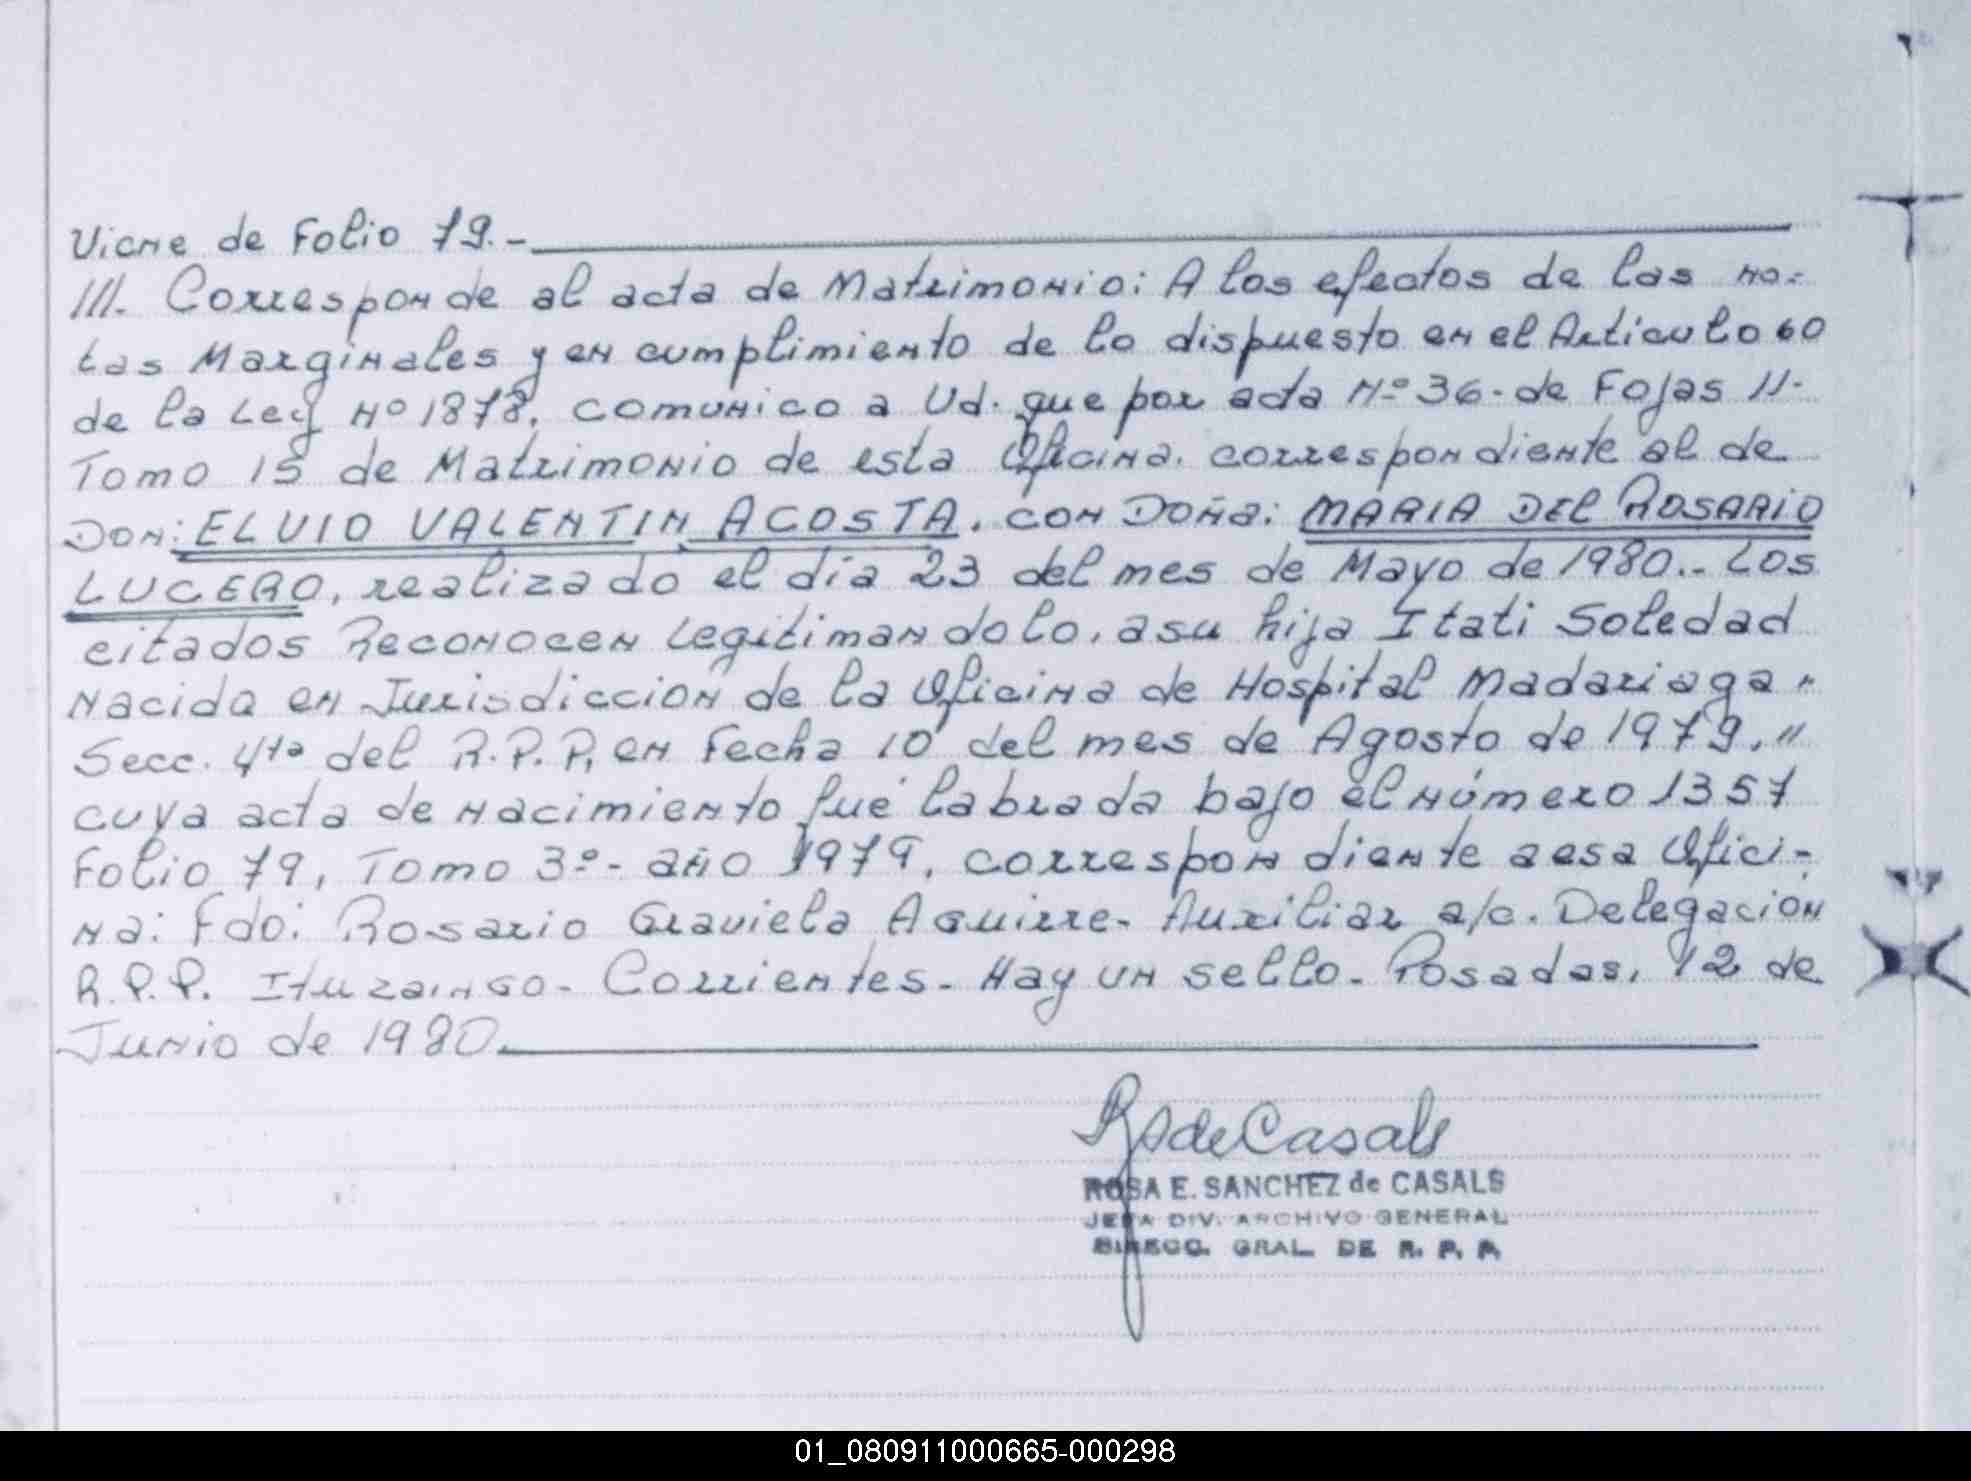 Viene de Folio 79.-
III. Corresponde al acta de Matrimonio: A los efectos de las no-
tas Marginales y en cumplimiento de lo dispuesto en el Artículo 60
de la Ley Nº 1878, comunico a Ud. que por acta Nº 36- de Fojas 11-
Tomo 15 de Matrimonio de esta Oficina. correspondiente al de
Don: ELUIO VALENTIN ACOSTA. con Doña: MARIA DEL ROSARIO
LUCERO, realizado el día 23 del mes de Mayo de 1980.- Los
citados Reconocen Legitimandolo, a su hija Itati Soledad
Nacida en Jurisdiccion de la Oficina de Hospital Madariaga "
Secc. 4ta del R.P.P, en Fecha 10 del mes de Agosto de 1979, "
cuya acta de nacimiento fué labrada bajo el número 1357
Folio 79, Tomo 3º- año 1979, correspondiente a esa Ofici-
na: Fdo: Rosario Graviela Aguirre- Auxiliar a/c. Delegacion
R.P.P. Ituzaingo- Corrientes- Hay un sello- Posadas, 12 de
Junio de 1980.
RSdeCasals
ROSA E. SANCHEZ de CASALS
JEFA DIV. ARCHIVO GENERAL
DIRECC. GRAL DE R. P. P.
01_080911000665-000298